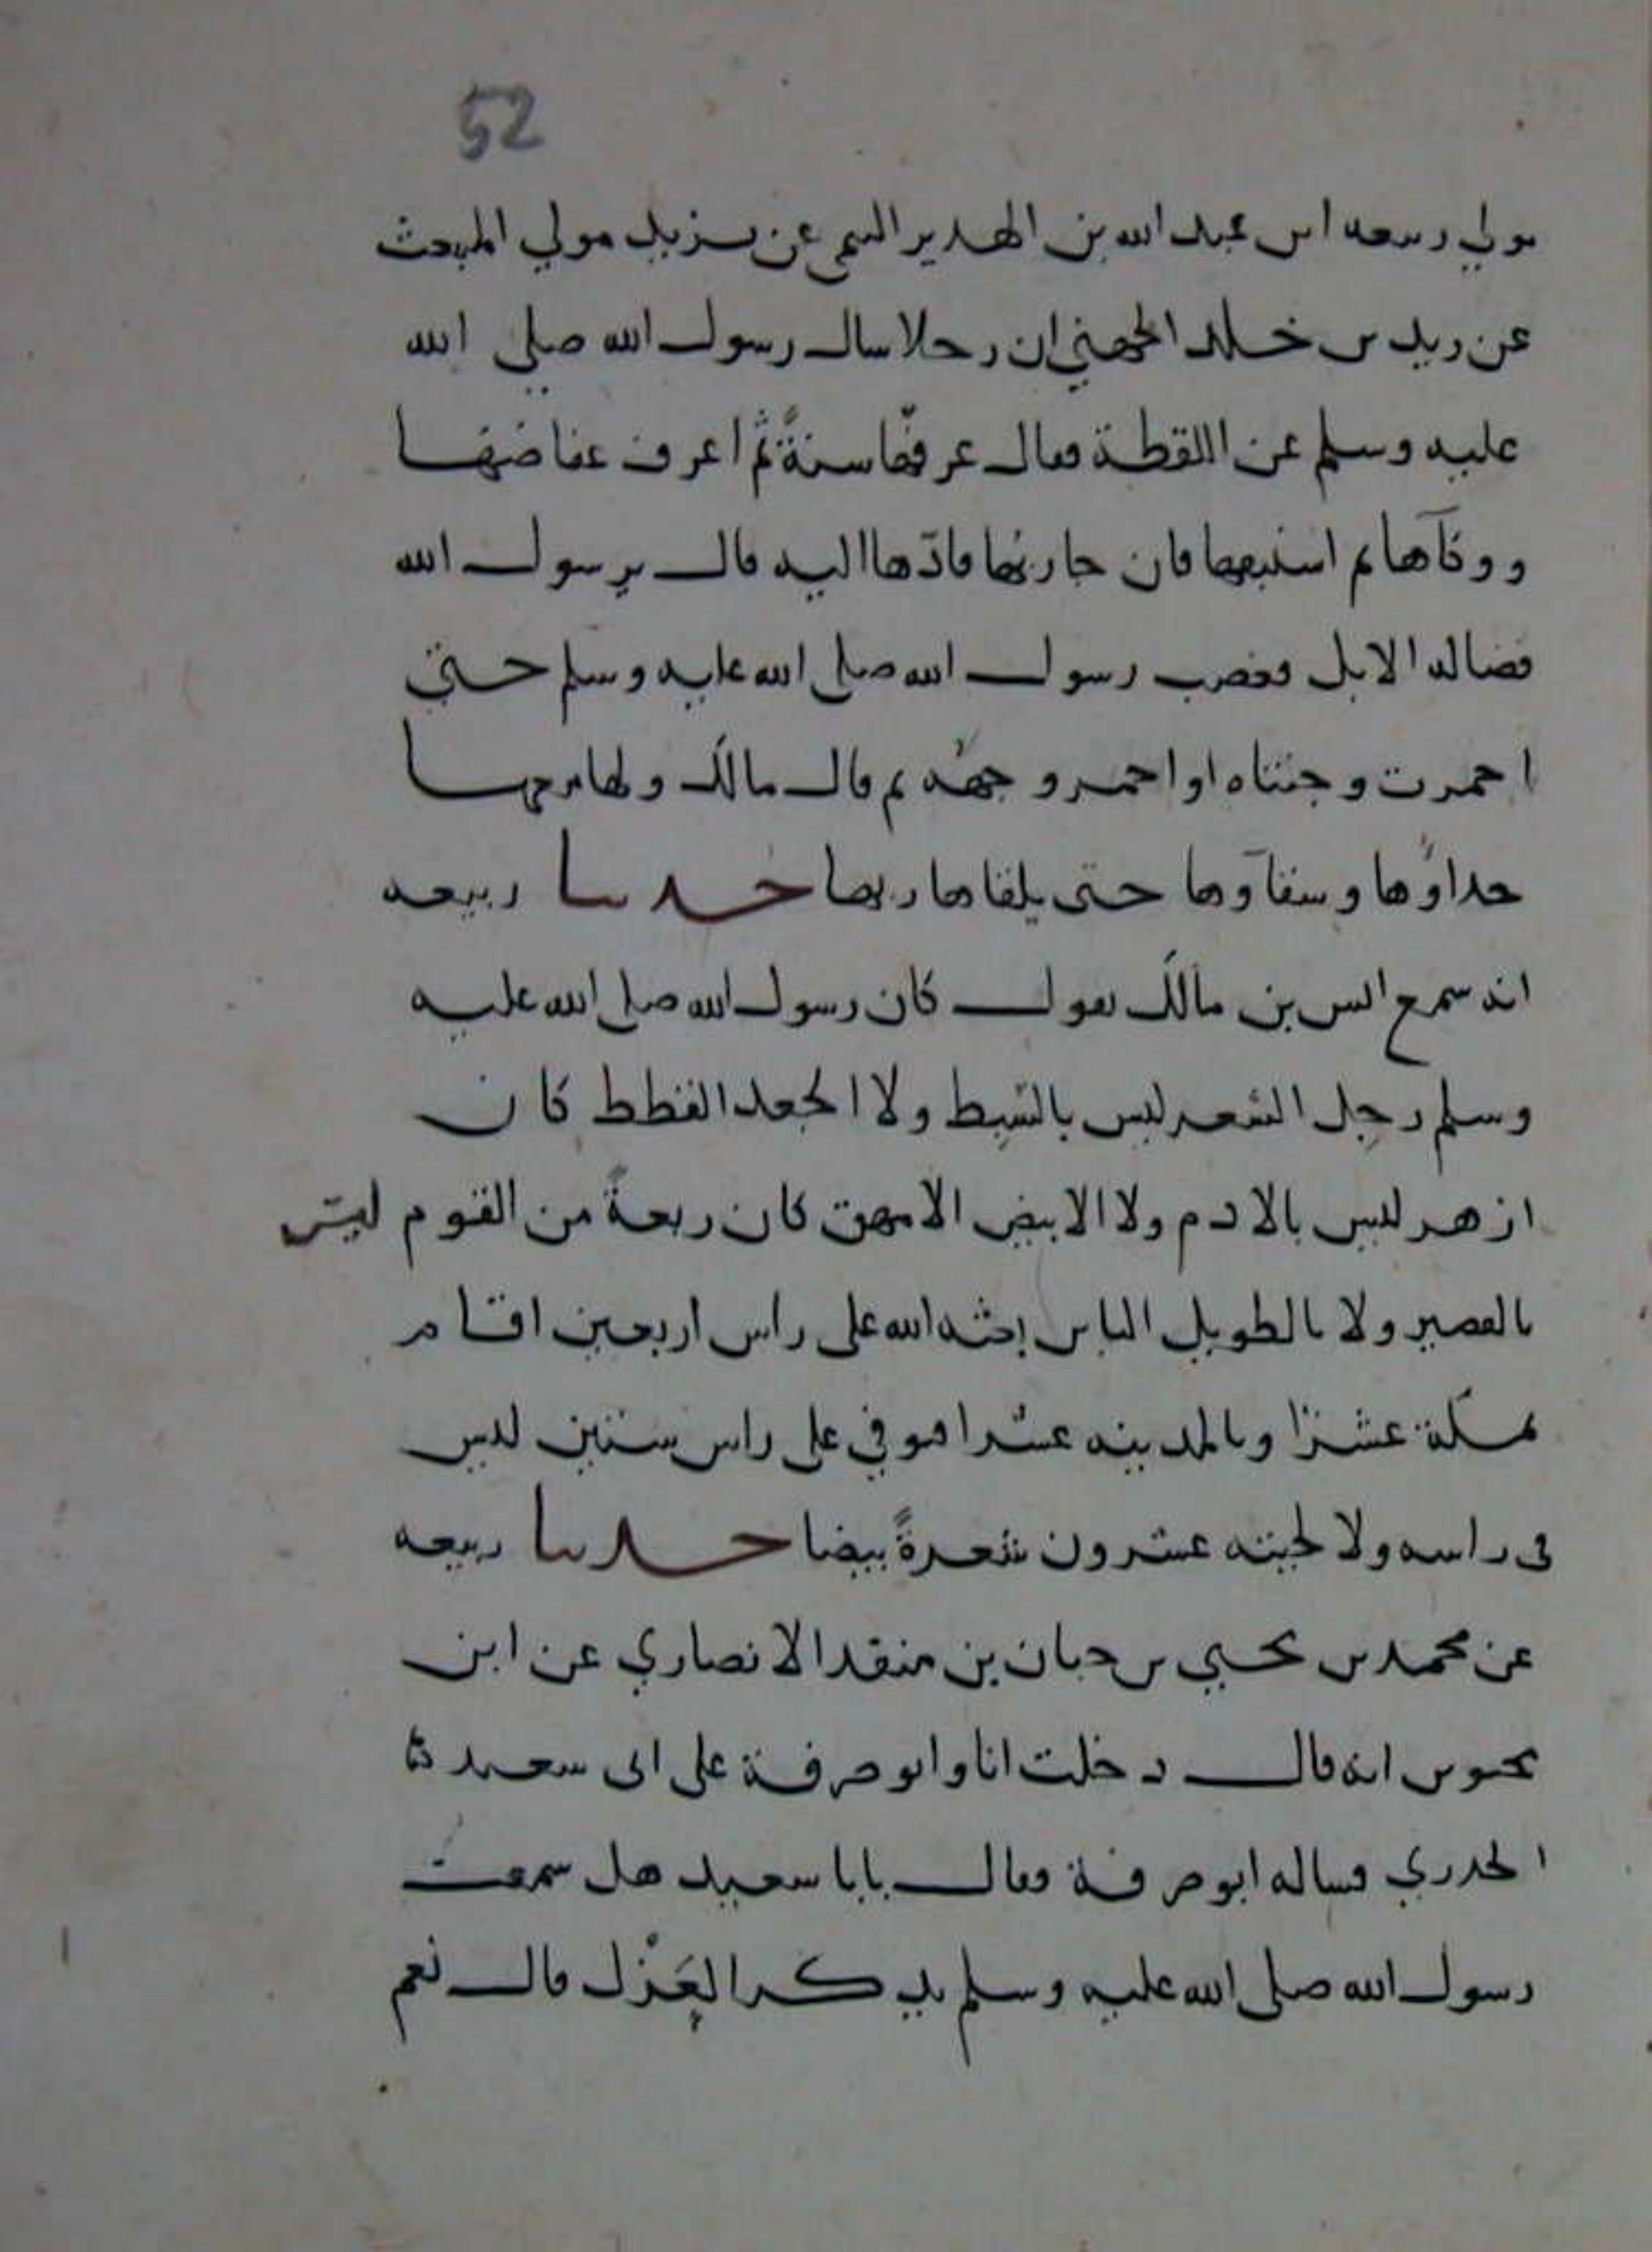 52
مولي ربيعه ابن عبد الله بن الهدير التيمي عن يزيد مولي المنبعث
عن زيد بن خلد الجهني ان رجلا سال رسول الله صلي الله
عليه وسلم عن اللقطة فقال عرفها سنةً ثم اعرف عفاصها
ووكآها ثم استنفقها فان جا ربها فادّها اليه قال يرسول الله
فضاله الابل فغضب رسول الله صلى الله عليه وسلم حتى
احمرت وجنتاه او احمر وجهه ثم قال مالك ولها معها
حذاوها وسقآوها حتى يلقاها ربها حدثنا ربيعه
انه سمع انس بن مالك يقول كان رسول الله صلى الله عليه
وسلم رجل الشعر ليس بالسبط ولا الجعد القطط كان
ازهر ليس بالادم ولا الابيض الامهق كان ربعةً من القوم ليس
بالقصير ولا بالطويل الباين بعثه الله على راس اربعين اقام
بمكة عشرا وبالمدينه عشرا فتوفي على راس ستين ليس
في راسه ولا لحيته عشرون شعرةً بيضا حدثنا ربيعه
عن محمد بن يحيي بن حبان بن منقد الانصاري عن ابن
محيريز انه قال دخلت انا وابو صرفة على ابى سعيد
الخدري فساله ابو صرفة فقال يابا سعيد هل سمعت
رسول الله صلى الله عليه وسلم يذكر العَزْل قال نعم